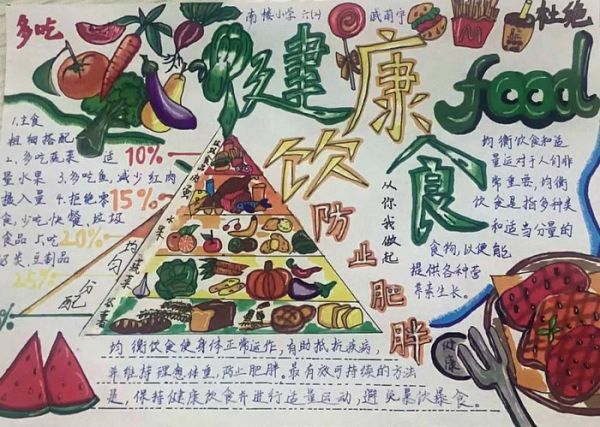 多吃
南楼小学
杜绝
健康
food
饮食
从你我做起
防止肥胖
1.主食
粗细搭配
2.多吃蔬菜 适
量水果 3.多吃鱼,减少红肉
摄入量 4.拒绝零
食,少吃快餐、垃圾
食品 5.吃
豆制品
10%
15%
20%
25%
均匀分配
水果
均衡饮食和适
量运动对于人们非
常重要,均衡
饮食是指多种类
和适当分量的
食物,以便能
提供各种营
养来生长。
健康
均衡饮食使身体正常运作,有助抵抗疾病,
并维持理想体重,防止肥胖。最有效可持续的方法
是,保持健康饮食并进行适量运动,避免暴饮暴食。